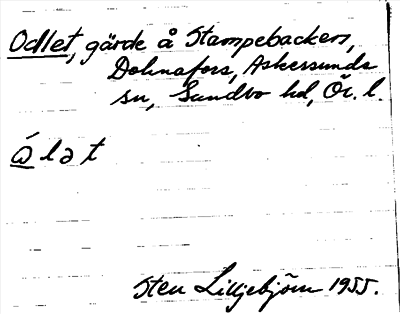 Odlet, gärde å Stampebacken,
Dohnafors, Askersunds
sn, Sundbo hd, Ör. l.
ó l ə t
Sten Lilljebjörn 1955.